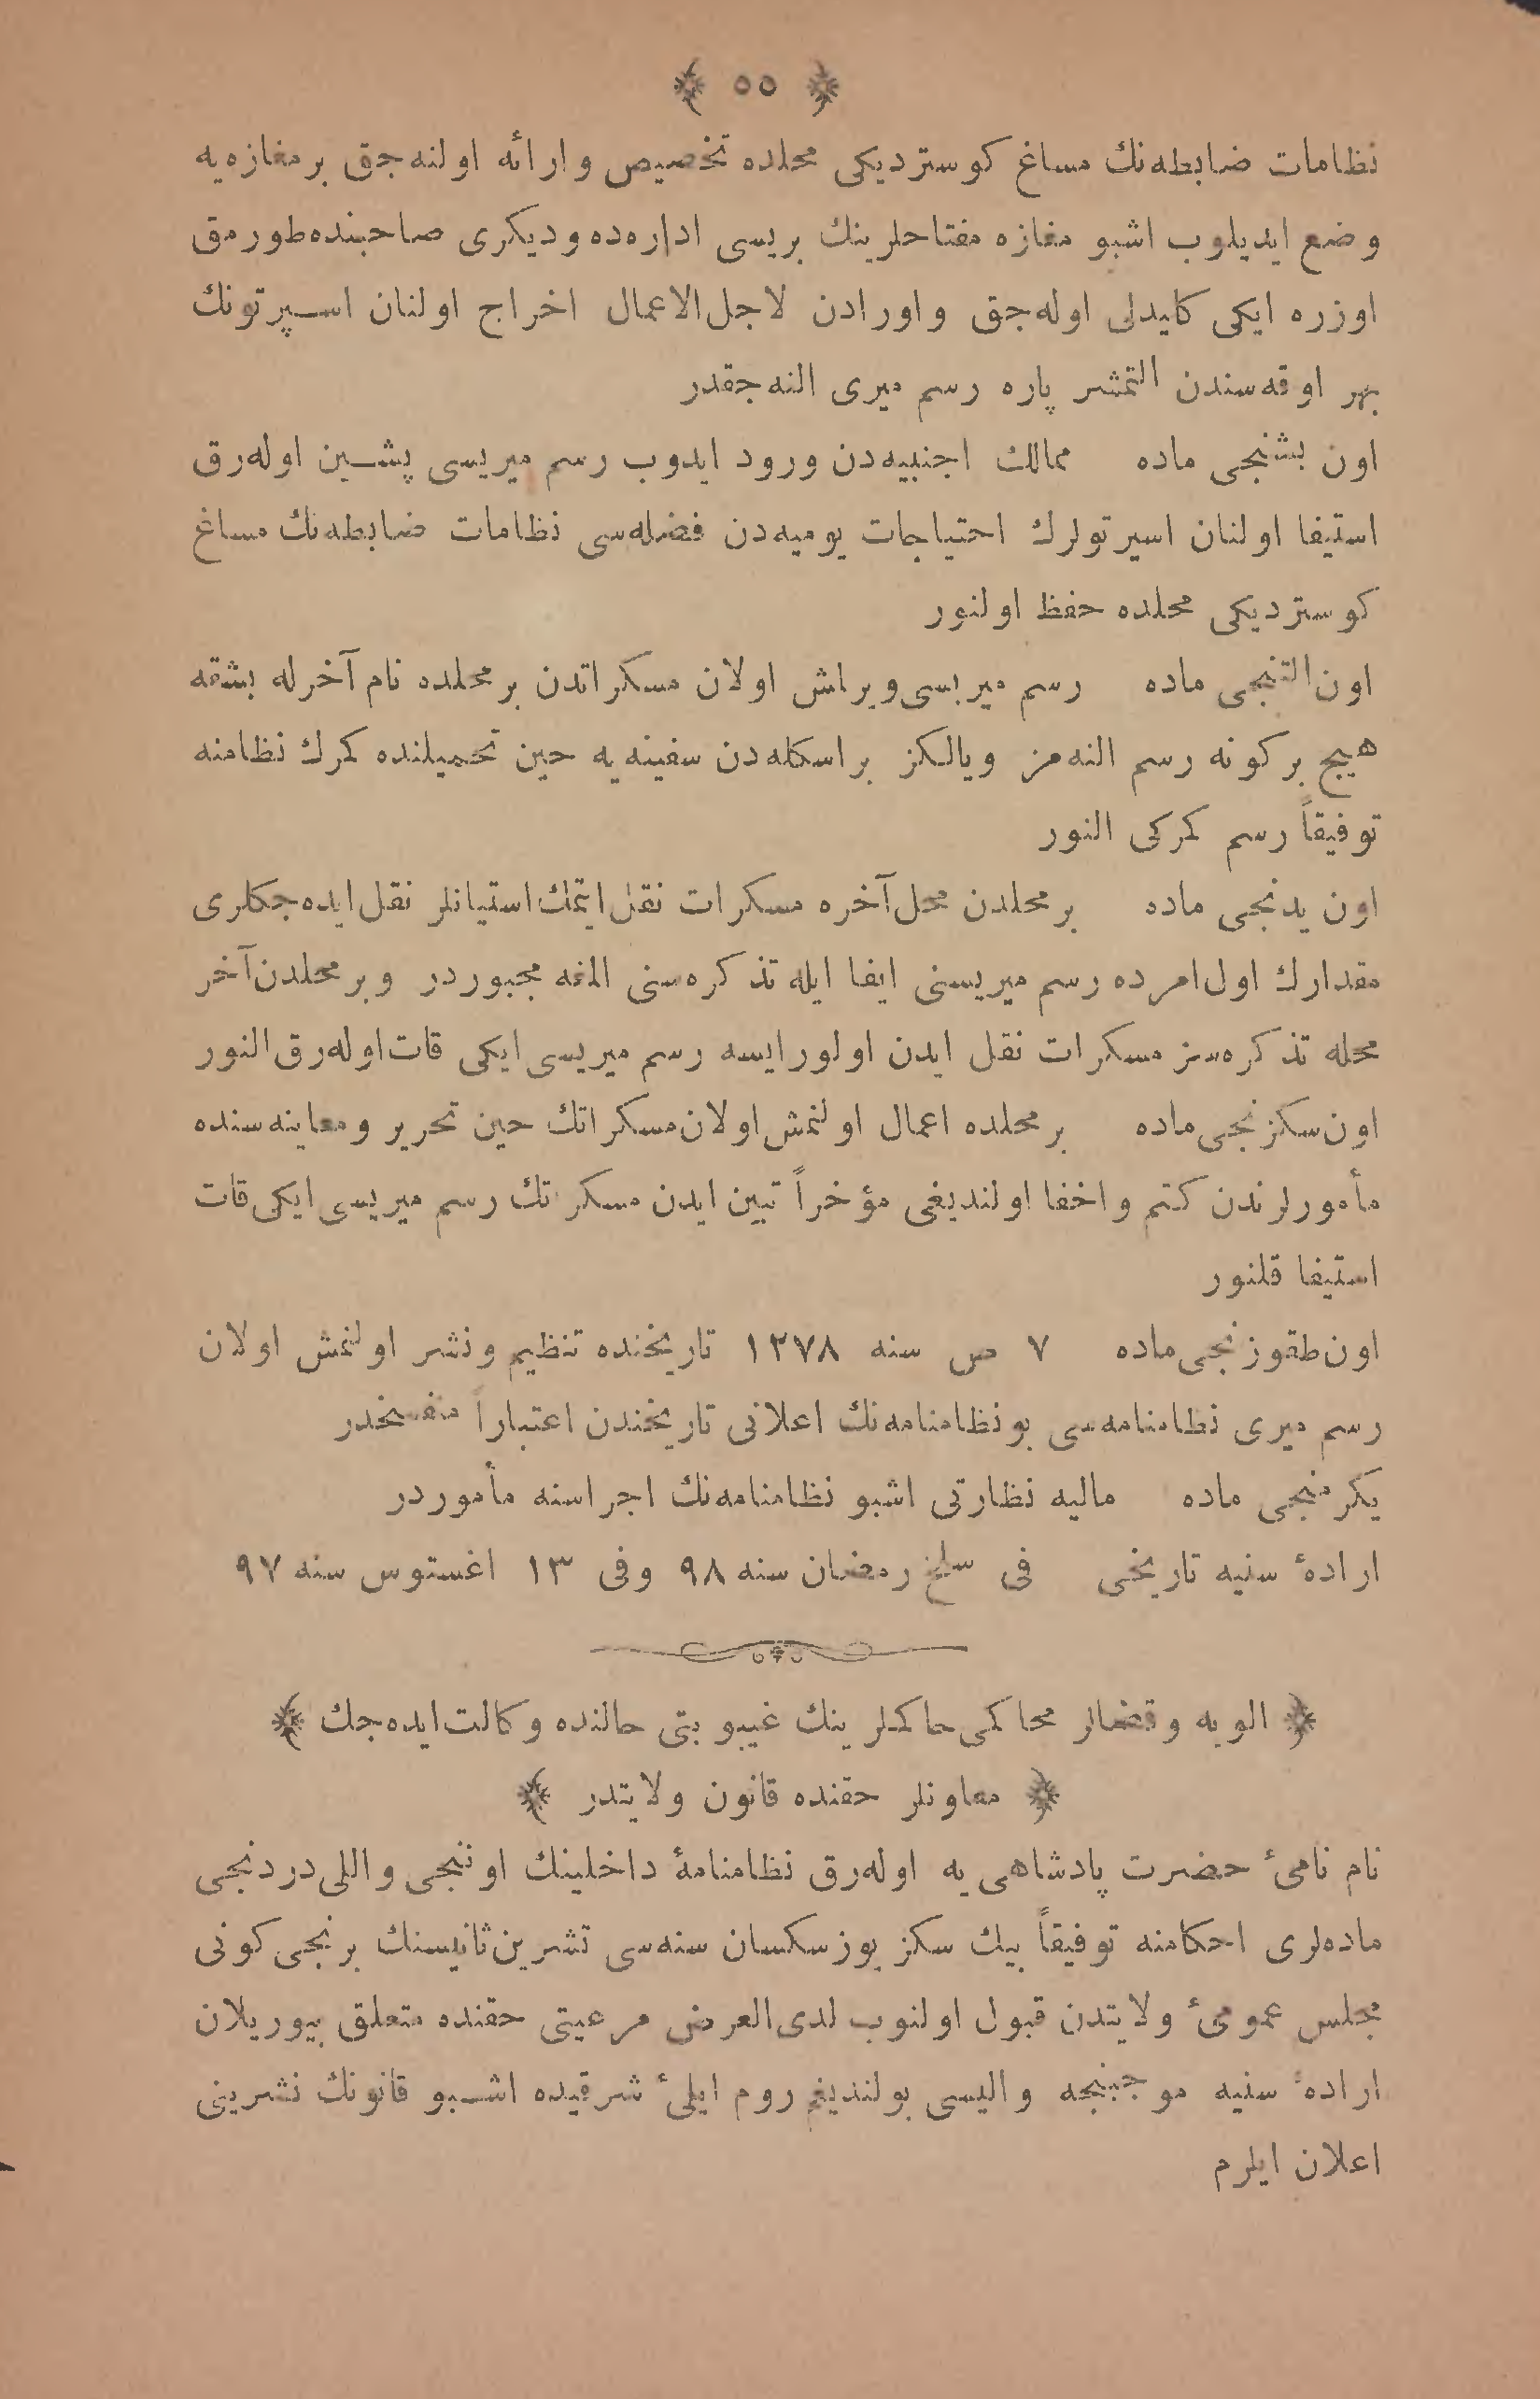 ﴿ ٥٥ ﴾
نظامات ضابطه‌نك مساغ كوستردیكی محلده تخصیص وارائه اولنه‌جق بر مغازه‌یه
وضع ایدیلوب اشبو مغازه مفتاحلرینك بریسی اداره‌ده ودیكری صاحبنده طورمق
اوزره ایكی كلیدلی اوله‌جق واورادن لاجل‌الاعمال اخراج اولنان اسپرتونك
بهر اوقه‌سندن التمشر پاره رسم میری النه‌جقدر
اون بشنجی ماده ممالك اجنبیه‌دن ورود ایدوب رسم میریسی پشین اوله‌رق
استیفا اولنان اسپرتولرك احتیاجات یومیه‌دن فضله‌سی نظامات ضابطه‌نك مساغ
كوستردیكی محلده حفظ اولنور
اون التنجی ماده رسم میریسی ویرلمش اولان مسكراتدن بر محلده نام آخرله بشقه
هیچ بر كونه رسم النه‌مز ویالكز بر اسكله‌دن سفینه‌یه حین تحمیلنده كمرك نظامنه
توفیقاً رسم كمركی النور
اون یدنجی ماده بر محلدن محل آخره مسكرات نقل ایتمك استیانلر نقل ایده‌جكلری
مقدارك اول امرده رسم میریسنی ایفا ایله تذكره‌سنی المغه مجبوردر وبر محلدن آخر
محله تذكره‌سز مسكرات نقل ایدن اولورایسه رسم میریسی ایكی قات اوله‌رق النور
اون سكزنجی ماده بر محلده اعمال اولنمش اولان مسكراتك حین تحریر ومعاینه‌سنده
مأمورلرندن كتم واخفا اولندیغی مؤخراً تبین ایدن مسكراتك رسم میریسی ایكی قات
استیفا قلنور
اون طقوزنجی ماده ٧ ص سنه ١٢٧٨ تاریخنده تنظیم ونشر اولنمش اولان
رسم میری نظامنامه‌سی بو نظامنامه‌نك اعلانی تاریخندن اعتباراً منفسخدر
یكرمنجی ماده مالیه نظارتی اشبو نظامنامه‌نك اجراسنه مأموردر
ارادهٔ سنیه تاریخی فی سلخ رمضان سنه ٩٨ وفی ١٣ اغستوس سنه ٩٧
﴿ الویه وقضالر محاكمی حاكملرینك غیبوبتی حالنده وكالت ایده‌جك ﴾
﴿ معاونلر حقنده قانون ولایتدر ﴾
نام نامیٔ حضرت پادشاهی‌یه اوله‌رق نظامنامهٔ داخلینك اوننجی واللی دردنجی
ماده‌لری احكامنه توفیقاً بیك سكز یوز سكسان سنه‌سی تشرین ثانیسنك برنجی كونی
مجلس عمومیٔ ولایتدن قبول اولنوب لدی العرض مرعیتی حقنده متعلق بیوریلان
ارادهٔ سنیه موجبنجه والیسی بولندیغم روم ایلیٔ شرقیده اشبو قانونك نشرینی
اعلان ایلرم